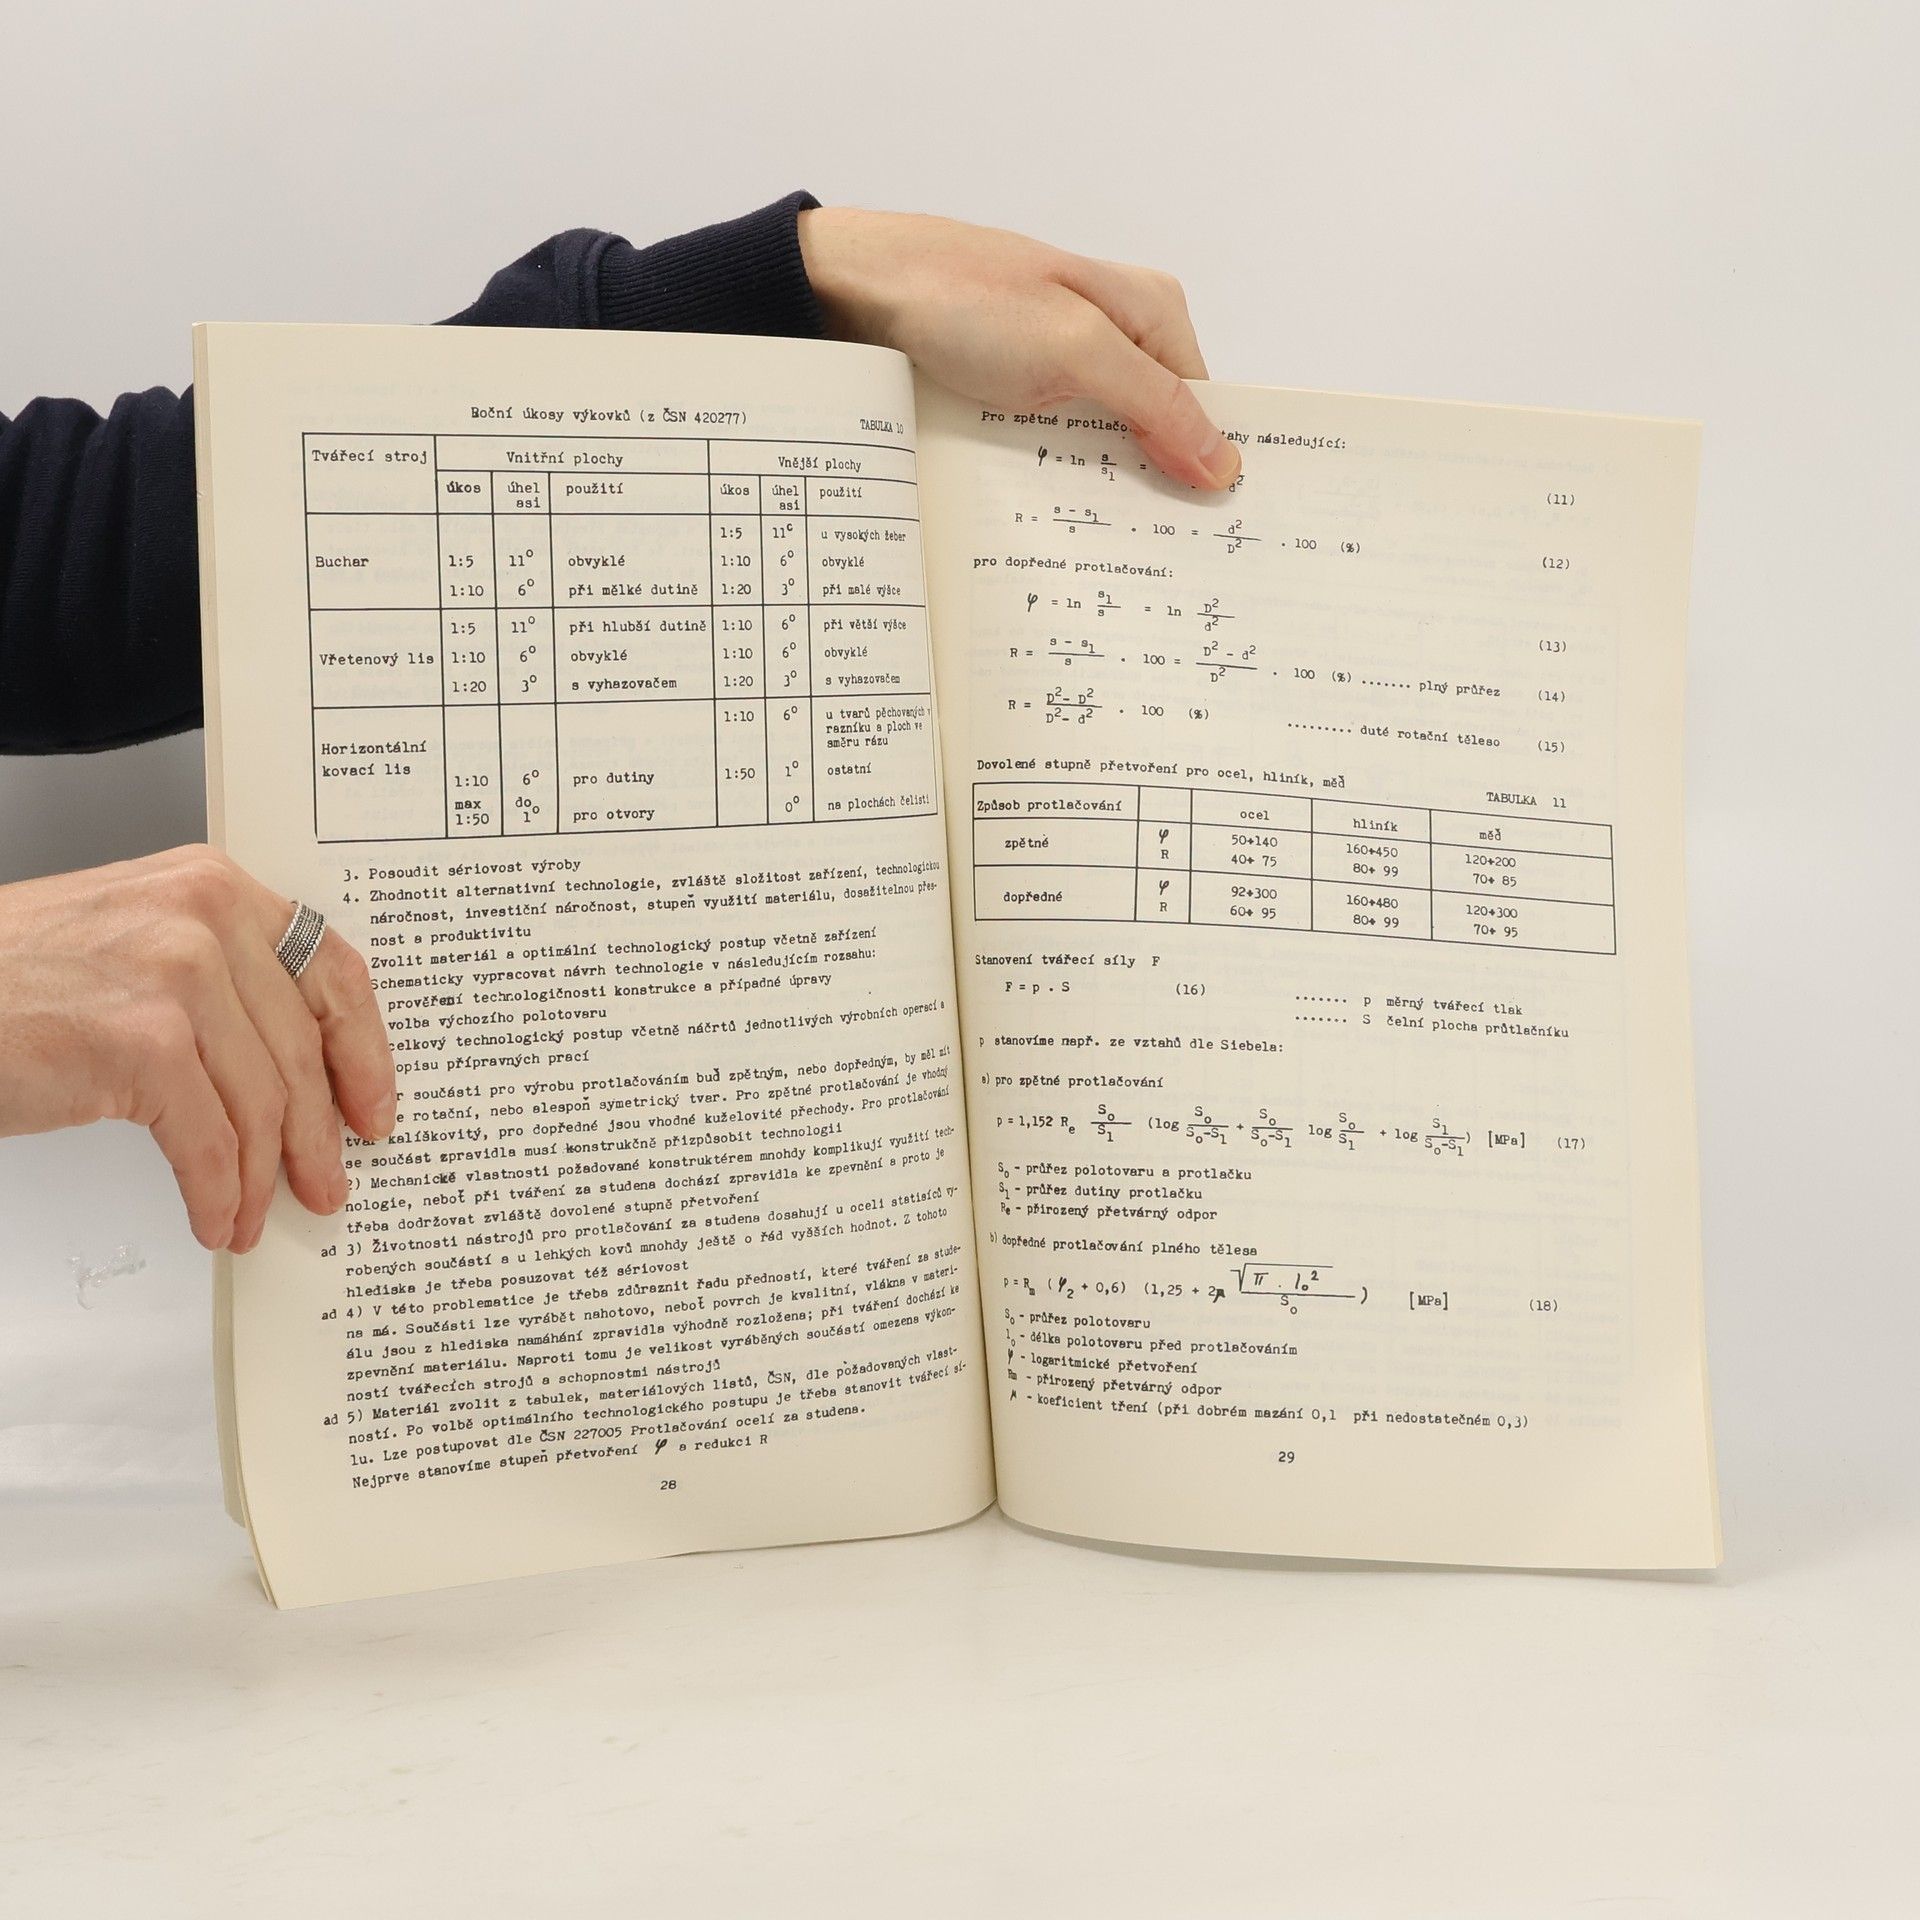 Boční úkosy výkovků (z ČSN 420277)
TABULKA 10
Tvářecí stroj Vnitřní plochy Vnější plochy
úkos úhel asi použití úkos úhel asi použití
1:5 11° u vysokých žeber
Buchar 1:5 11° obvyklé 1:10 6° obvyklé
1:10 6° při mělké dutině 1:20 3° při malé výšce
1:5 11° při hlubší dutině 1:10 6° při větší výšce
Vřetenový lis 1:10 6° obvyklé 1:10 6° obvyklé
1:20 3° s vyhazovačem 1:20 3° s vyhazovačem
1:10 6° u tvarů pěchovaných v
razníku a ploch ve
směru rázu
Horizontální
kovací lis 1:10 6° pro dutiny 1:50 1° ostatní
max 1:50 do 1° pro otvory 0° na plochách čelistí
3. Posoudit sériovost výroby
4. Zhodnotit alternativní technologie, zvláště složitost zařízení, technologickou
náročnost, investiční náročnost, stupeň využití materiálu, dosažitelnou přes-
nost a produktivitu
Zvolit materiál a optimální technologický postup včetně zařízení
Schematicky vypracovat návrh technologie v následujícím rozsahu:
prověření technologičnosti konstrukce a případné úpravy
volba výchozího polotovaru
celkový technologický postup včetně náčrtů jednotlivých výrobních operací a
opisu přípravných prací
součásti pro výrobu protlačováním buď zpětným, nebo dopředným, by měl mít
rotační, nebo alespoň symetrický tvar. Pro zpětné protlačování je vhodný
tvar kalíškovitý, pro dopředné jsou vhodné kuželovité přechody. Pro protlačování
se součást zpravidla musí konstrukčně přizpůsobit technologii
2) Mechanické vlastnosti požadované konstruktérem mnohdy komplikují využití tech-
nologie, neboť při tváření za studena dochází zpravidla ke zpevnění a proto je
třeba dodržovat zvláště dovolené stupně přetvoření
ad 3) Životnosti nástrojů pro protlačování za studena dosahují u oceli statisíců vy-
robených součástí a u lehkých kovů mnohdy ještě o řád vyšších hodnot. Z tohoto
hlediska je třeba posuzovat též sériovost
ad 4) V této problematice je třeba zdůraznit řadu předností, které tváření za stude-
na má. Součásti lze vyrábět nahotovo, neboť povrch je kvalitní, vlákna v materi-
álu jsou z hlediska namáhání zpravidla výhodně rozložena; při tváření dochází ke
zpevnění materiálu. Naproti tomu je velikost vyráběných součástí omezena výkon-
ností tvářecích strojů a schopnostmi nástrojů
ad 5) Materiál zvolit z tabulek, materiálových listů, ČSN, dle požadovaných vlast-
ností. Po volbě optimálního technologického postupu je třeba stanovit tvářecí sí-
lu. Lze postupovat dle ČSN 227005 Protlačování ocelí za studena.
Nejprve stanovíme stupeň přetvoření φ a redukci R
28
Pro zpětné protlačo tahy následující:
φ = ln s/s₁ = d² (11)
R = (s - s₁)/s . 100 = d²/D² . 100 (%) (12)
pro dopředné protlačování:
φ = ln s₁/s = ln D²/d² (13)
R = (s - s₁)/s . 100 = (D² - d²)/D² . 100 (%) ....... plný průřez (14)
R = (D² - D²)/(D² - d²) . 100 (%) ......... duté rotační těleso (15)
Dovolené stupně přetvoření pro ocel, hliník, měď
TABULKA 11
Způsob protlačování ocel hliník měď
zpětné φ 50÷140 160÷450 120÷200
R 40÷ 75 80÷ 99 70÷ 85
dopředné φ 92÷300 160÷480 120÷300
R 60÷ 95 80÷ 99 70÷ 95
Stanovení tvářecí síly F
F = p . S (16) ....... p měrný tvářecí tlak
....... S čelní plocha průtlačníku
p stanovíme např. ze vztahů dle Siebela:
a) pro zpětné protlačování
p = 1,152 Re So/S1 (log So/(So-S1) + So/(So-S1) log So/S1 + log S1/(So-S1)) [MPa] (17)
So - průřez polotovaru a protlačku
S1 - průřez dutiny protlačku
Re - přirozený přetvárný odpor
b) dopředné protlačování plného tělesa
p = Rm (φ2 + 0,6) (1,25 + 2μ √(π . lo²)/So) [MPa] (18)
So - průřez polotovaru
lo - délka polotovaru před protlačováním
φ - logaritmické přetvoření
Rm - přirozený přetvárný odpor
μ - koeficient tření (při dobrém mazání 0,1 při nedostatečném 0,3)
29